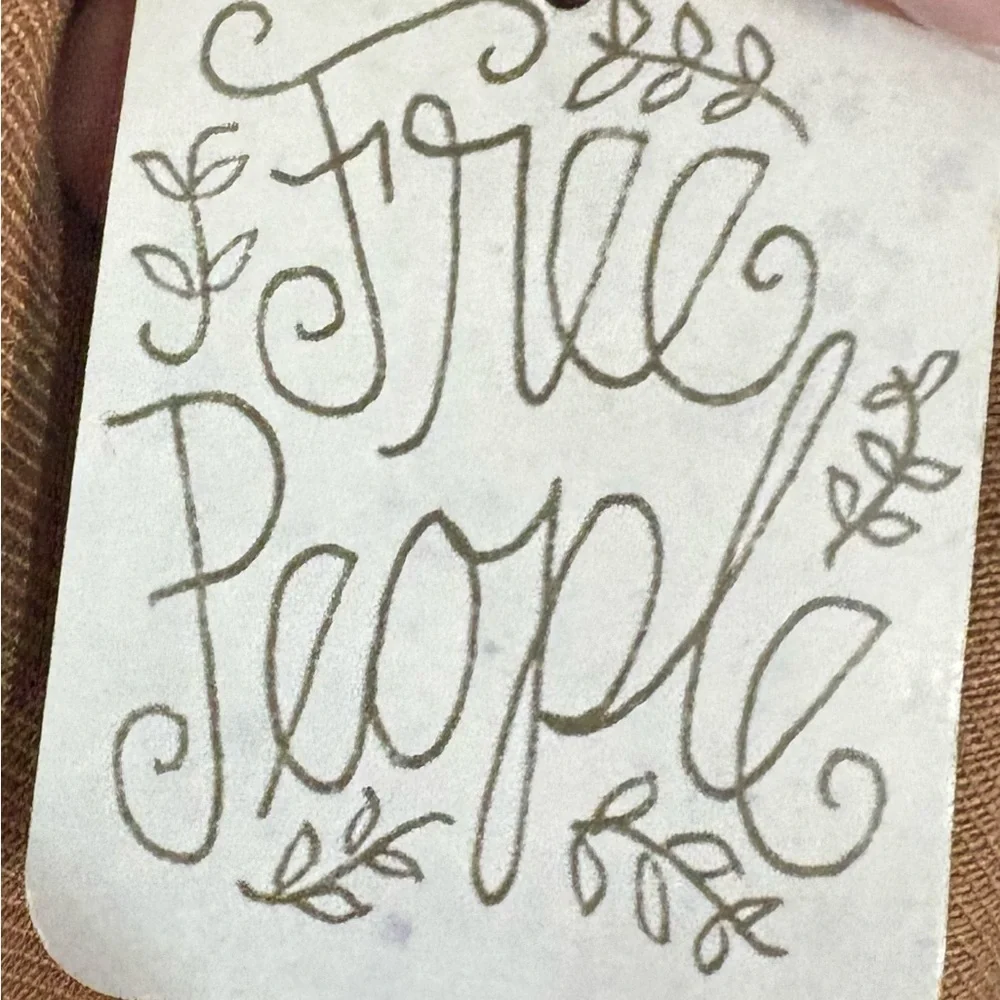 Free
People